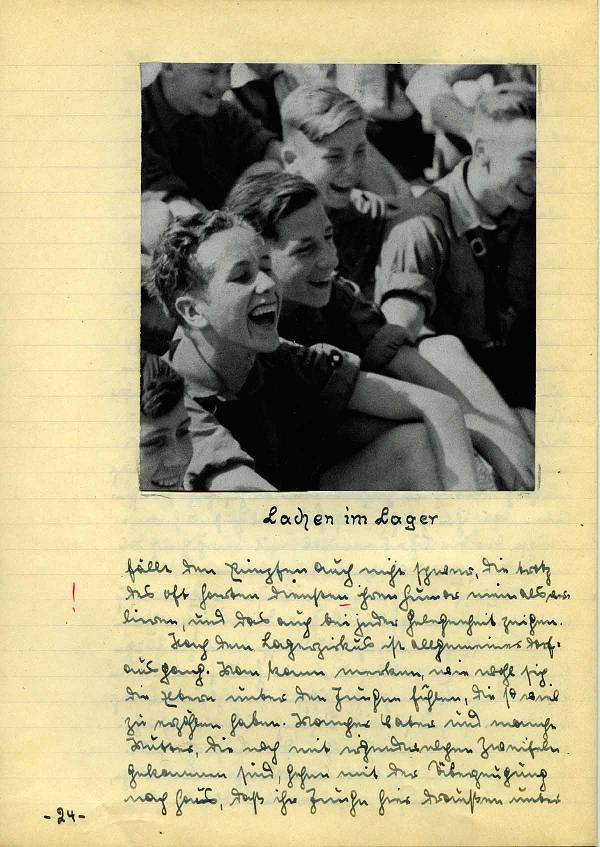 Lachen im Lager
fällt den Pimpfen auch nicht schwer, die trotz
! des oft harten Diensten ihren Humor niemals ver-
lieren, und das auch bei jeder Gelegenheit zeigen.
Nach dem Lagerzirkus ist allgemeiner Dorf-
ausgang. Man kann merken, wie wohl sich
die Eltern unter den Jungen fühlen, die so viel
zu erzählen haben. Mancher Vater und manche
Mutter, die noch mit irgendwelchen Zweifeln
gekommen sind, gehen mit der Überzeugung
nach Haus, daß ihr Junge hier draußen unter
-24-